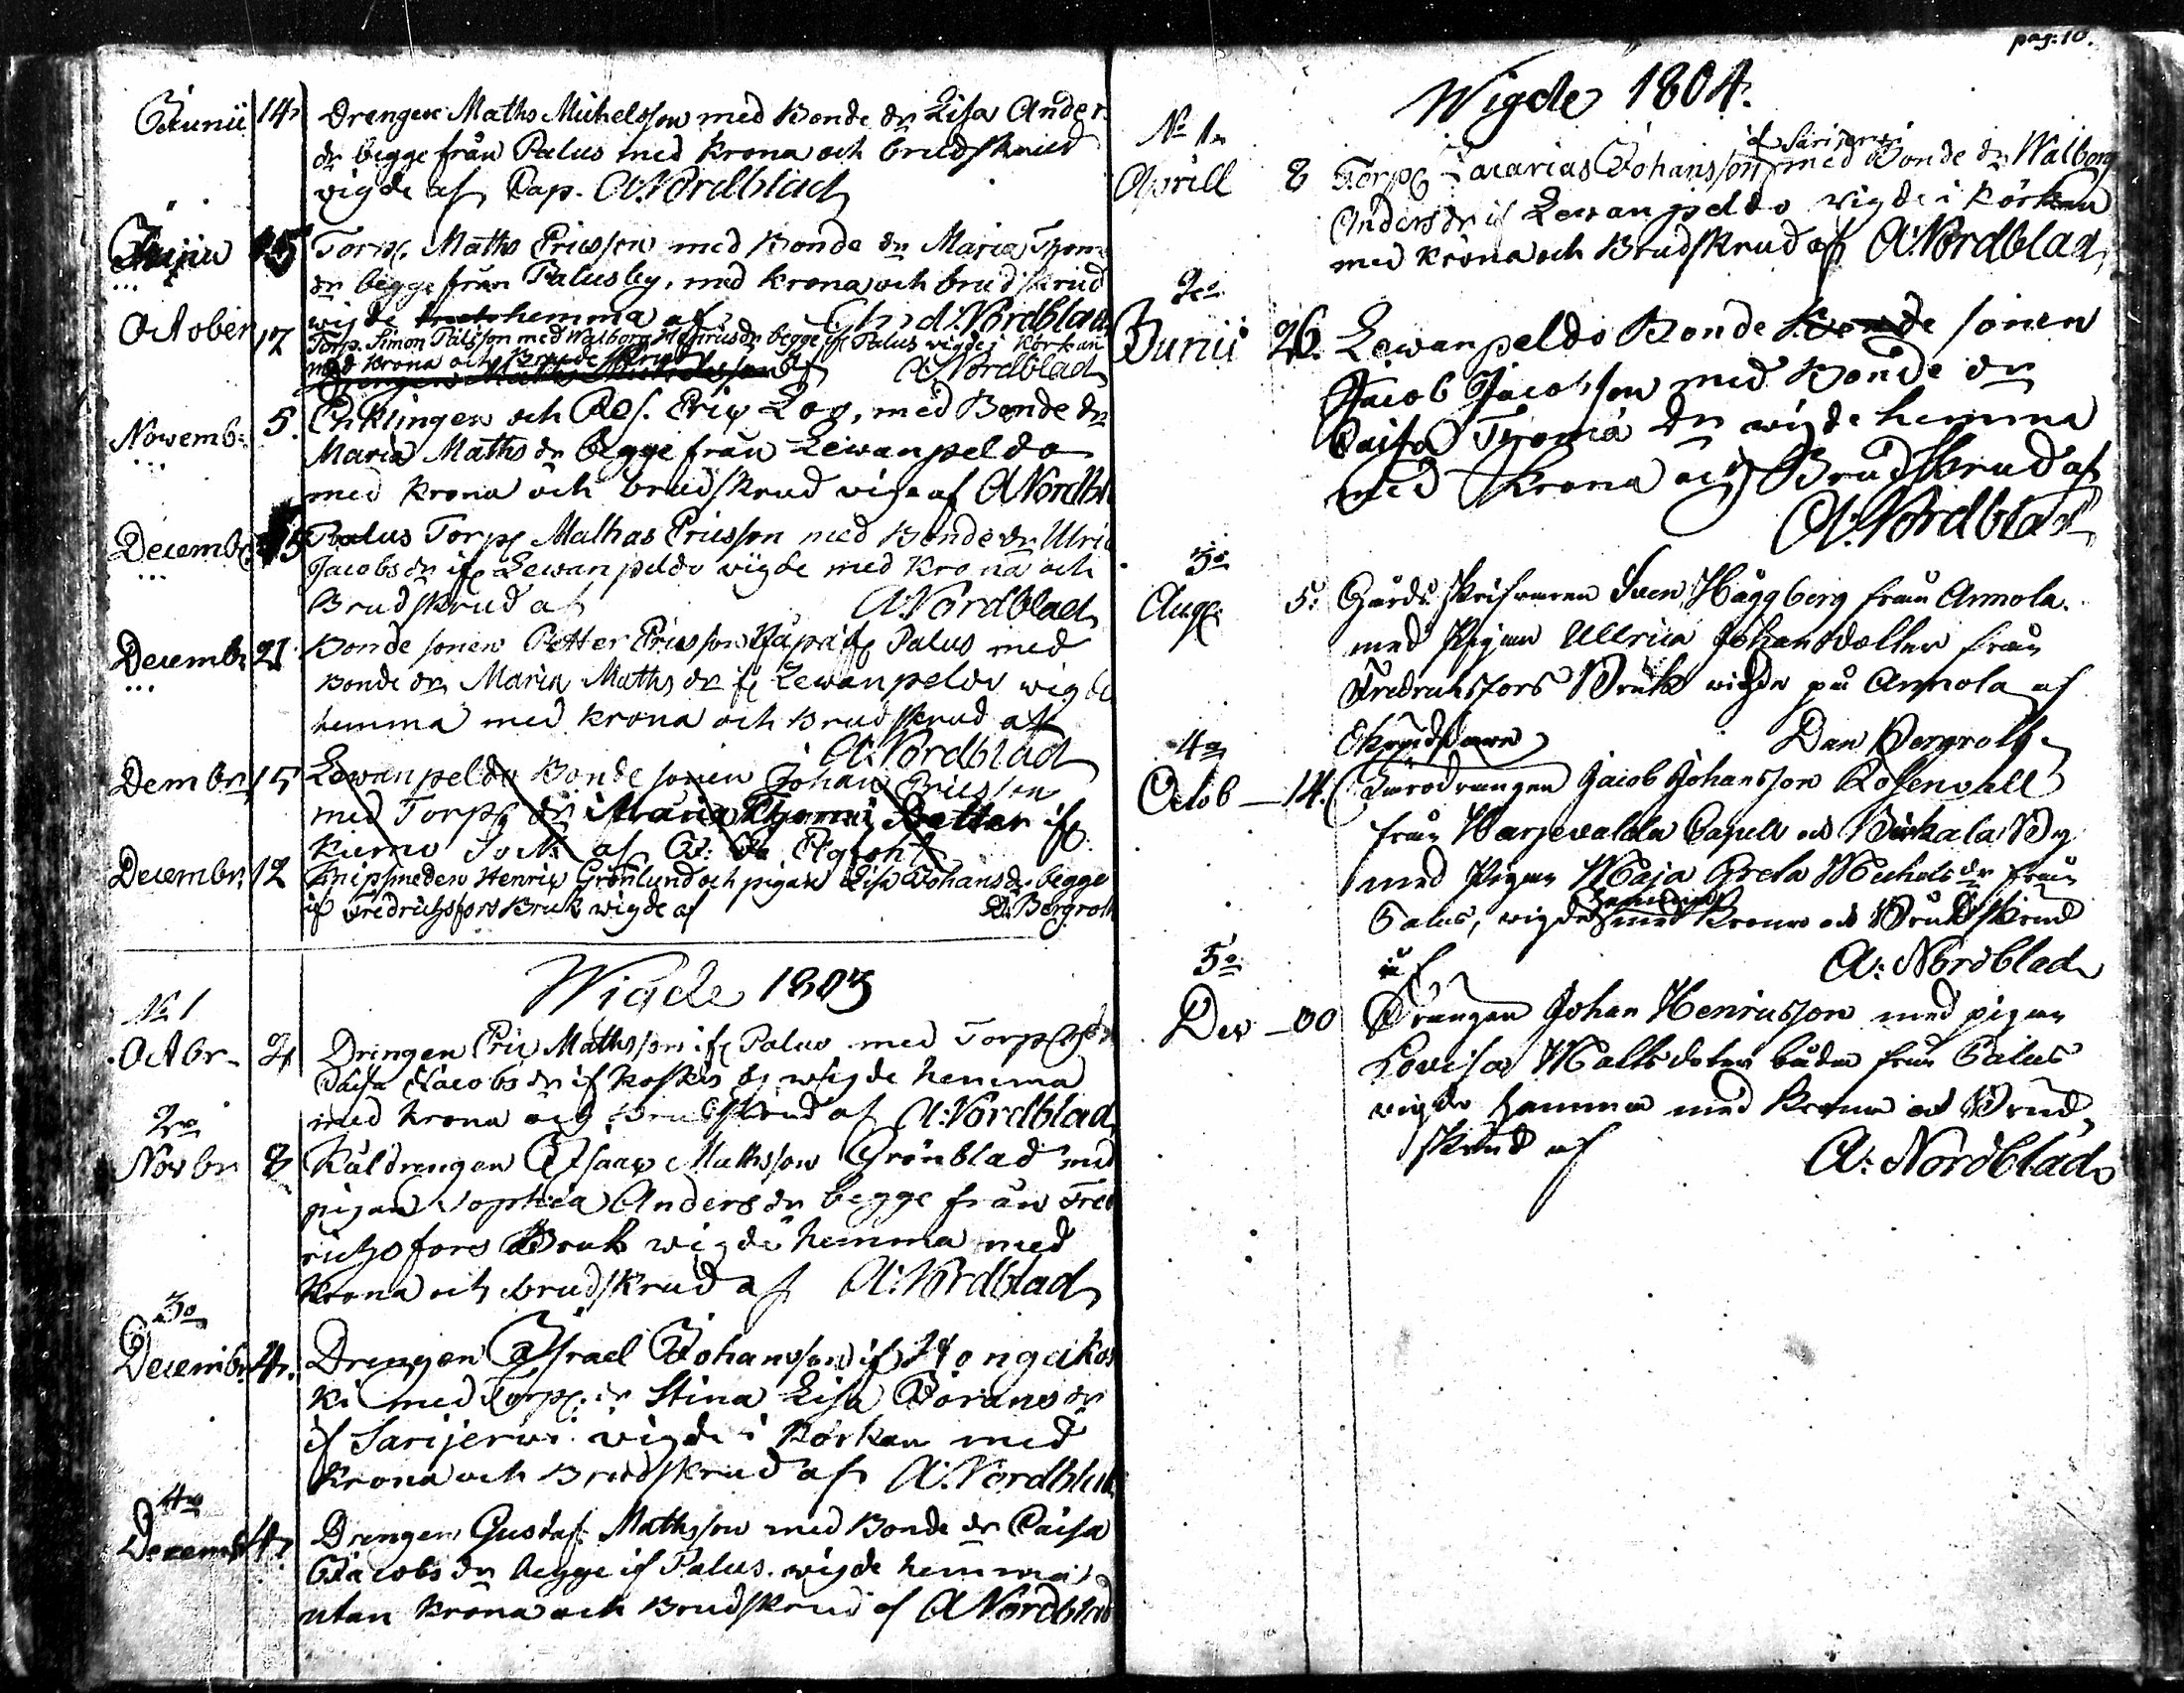 Junii 14 Drengen Maths Michelsson med Bonde dr Lisa Anders
dr begge från Palus med Krona och brudskrud
vigde af Cap. A: Nordblad
15 Torp. Maths Ericsson med Bonde dr Maria Thom
dr begge från Palusby, med Krona och brudskrud
wigde hemma af A: Nordblad
October 17 Torp. Simon Påhlsson med Walborg Henricsdr begge if Palus vigde i Körkan
med Krona och Brudeskrud af A Nordblad
Novemb: 5. Enklingen och Res. Eric Log, med Bonde dr
Maria Maths dr begge från Lewanpeldo
med Krona och brudskrud vigde af A Nordbl
Decembr 15 Palus Torp Mathas Ericsson med Bonde dr Ulric
Jacobs dr if Lewanpeldo vigde med Krona och
Brudskrud af A: Nordblad
Decembr 21 Bonde sonen Petter Ericsson if Palus med
Bonde dr Maria Maths dr if Lewanpeldo wigde
hemma med Krona och Brudskrud af
A: Nordblad
Dembr 15 Lewanpeldo Bonde sonen Johan Ericsson
med Torp dr Maria Thomæ Dotter if
Kiumo Sock af
Decembr 12 Knipsmeden Henric Grönlund och pigan Lisa Johans dr begge
if Fredrichsfors Bruk wigde af D: Bergroth
Wigde 1803
No 1
Octbr 2 Drengen Eric Mathsson if Palus med Torp
Caisa Jacobs dr if Koskis by wigde hemma
med Krona och Brudskrud af A: Nordblad
2o
Novbr 8 Kåldrengen Isaac Mathsson Grönblad med
pigan Sophia Anders dr begge från Fred
richsfors Bruk wigde hemma med
Krona och brudskrud af A: Nordblad
3o
Decembr 4. Drengen Israel Johansson if Hongakos
ki med Torp. dr Stina Lisa Görans dr
if Sarijerwi vigde i Körkan med
Krona och Brudskrud af A: Nordblad
4o
Decemb 4. Drengen Gustaf Mathsson med Bonde dr Caisa
Jacobs dr begge if Palus. wigde hemma
utan Krona och Brudskrud af A Nordblad
pag: 10.
Wigde 1804.
No 1
if Sarijerwi
Aprill 8 Torp Zacarias Johansson med Bonde dr Walborg
Anders dr if Lewanpeldo vigde i Körkan
med Krona och Brudskrud af A: Nordblad
2o
Junii 26. Lewanpeldo Bonde Bonde sonen
Jacob Jacobsson med Bonde dr
Caisa Thomä dr wigde hemma
med Krona och Brudskrud af
A: Nordblad
3o
Aug: 5: Gårds Skrifvaren Sven Häggberg från Annola
med Pigan Ullrica Johansdotter från
Fredrichsfors Bruk vigde på Annola af
Dan Bergroth
4o
Octob 14. Jacob Johansson Rosenvall
från Harjevalda Capell och Birkala By
med Pigan Maja Greta Michels dr från
Palus, vigde hemma med Krona och Brudskrud
af A: Nordblad
5o
Dec 30 Drängen Johan Henricsson med pigan
Lovisa Mattsdoter båda från Palus
vigde hemma med Krona och Brud
skrud af A: Nordblad